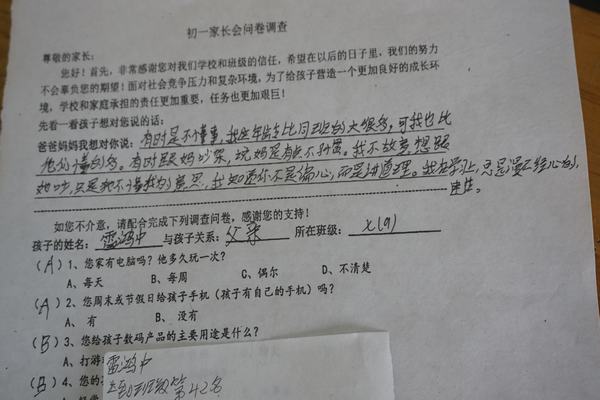 初一家长会问卷调查
尊敬的家长:
您好！首先，非常感谢您对我们学校和班级的信任，希望在以后的日子里，我们的努力
不会辜负您的期望！面对社会竞争压力和复杂环境，为了给孩子营造一个更加良好的成长环
境，学校和家庭承担的责任更加重要，任务也更加艰巨！
先看一看孩子想对您说的话:
爸爸妈妈我想对你说: 有时是不懂事，我在年龄比同班的大很多，可我也比
他们懂的多。有时跟妈妈吵架，说妈是有点不孙慢。我不故意想跟
她吵，只是她不懂我的意思，我知道你不是偏心，而是讲道理。我在学习上，总是漫不经心的，
如您不介意，请配合完成下列调查问卷，感谢您的支持！
孩子的姓名: 雷鸿中 与孩子关系: 父亲 所在班级: 七(9)
(A) 1、您家有电脑吗？他多久玩一次？
A、每天 B、每周 C、偶尔 D、不清楚
(A) 2、您周末或节假日给孩子手机（孩子有自己的手机）吗？
A、有 B、没有
(B) 3、您给孩子数码产品的主要用途是什么？
A、打游
雷鸿中
(B) 4、您的
班级第42名